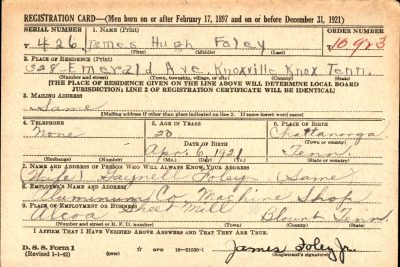 REGISTRATION CARD—(Men born on or after February 17, 1897 and on or before December 31, 1921)
SERIAL NUMBER 1. NAME (Print) ORDER NUMBER
T 426 James Hugh Foley 10,983
(First) (Middle) (Last)
2. PLACE OF RESIDENCE (Print)
1328 Emerald Ave. Knoxville Knox Tenn.
(Number and street) (Town, township, village, or city) (County) (State)
[THE PLACE OF RESIDENCE GIVEN ON THE LINE ABOVE WILL DETERMINE LOCAL BOARD
JURISDICTION; LINE 2 OF REGISTRATION CERTIFICATE WILL BE IDENTICAL]
3. MAILING ADDRESS
Same
[Mailing address if other than place indicated on line 2. If same insert word same]
4. TELEPHONE 5. AGE IN YEARS 6. PLACE OF BIRTH
None 20 Chattanooga
DATE OF BIRTH (Town or county)
Apr. 6 1921 Tenn
(Exchange) (Number) (Mo.) (Day) (Yr.) (State or country)
7. NAME AND ADDRESS OF PERSON WHO WILL ALWAYS KNOW YOUR ADDRESS
(Wife) Foley (Same)
8. EMPLOYER'S NAME AND ADDRESS
Aluminum Co. Machine Shop
9. PLACE OF EMPLOYMENT OR BUSINESS
Alcoa Sheet Mill Blount Tenn.
(Number and street or R. F. D. number) (Town) (County) (State)
I AFFIRM THAT I HAVE VERIFIED ABOVE ANSWERS AND THAT THEY ARE TRUE.
D. S. S. Form 1
(Revised 1-1-42) (over) GPO 16—21630-1 James Foley Jr.
(Registrant's signature)